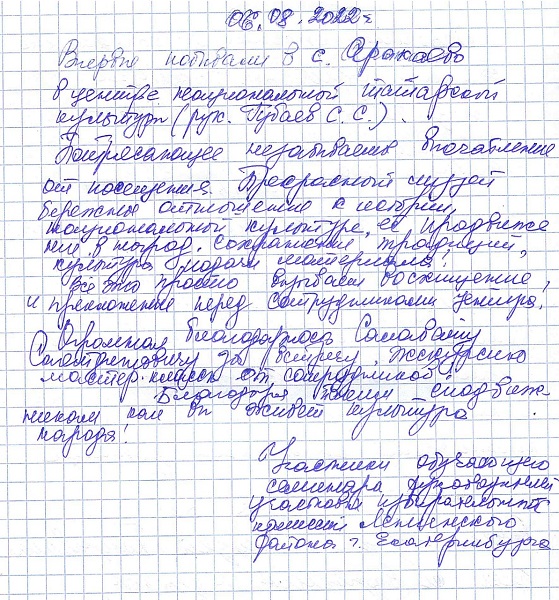 06.08.2022 г
Впервые побывали в с. Аракаево
в центре национальной татарской
культуры (рук. Губаев С.С.).
Потрясающее незабываемое впечатление
от посещения. Прекрасный музей
бережные отношение к истории,
национальной культуре, её продвиже
ние в народ, сохранение традиций,
культура подачи материала!
Всё это просто вызывает восхищение,
и преклонение перед сотрудниками центра!
Огромная благодарность
за встречу, экскурсию
мастер-класс от сотрудников!
Благодаря таким сподвиж
никам как вы живёт культура
народа!
Участники обучающего
семинара руководителей
участковых избирательных
комиссий Ленинского
района г. Екатеринбурга